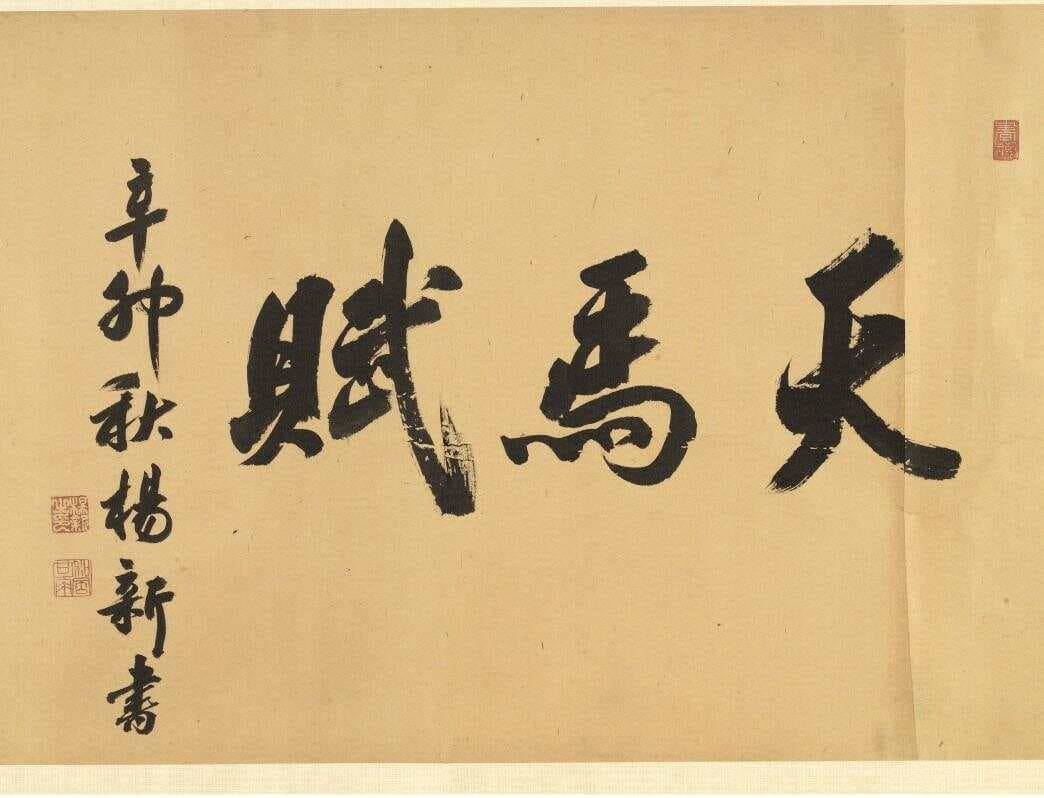 天馬賦
辛卯秋楊新書